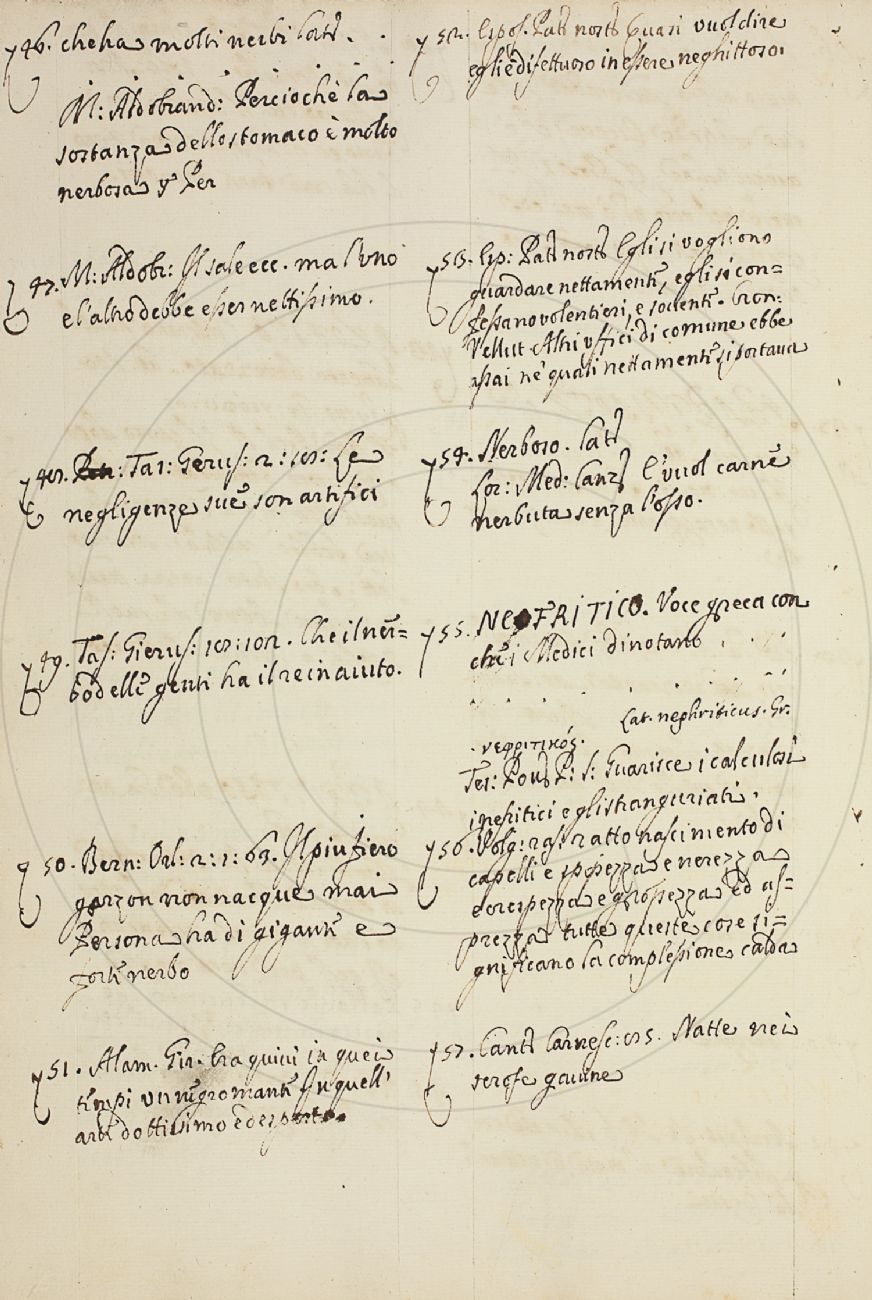 46. che ha molti nerbi Lat:
M: Aldobrand: Percioché la
sostanza dello stomaco è molto
nerbosa y Per
47. M: Aldobr: Il sale ecc. ma l'uno
e l'altro debbe esser nettissimo.
48. Tas: Gerus: 2: 18: Le
negligenze sue son artifici
49. Tas: Gierus: 18: 102. Che il nér=
bo delle genti ha il re in aiuto.
50. Bern: Orl: 2: 1: 63. Il piu fiero
garzon non nacque mai
Persona ha di gigante e
forte nerbo
51. Alam. Gir. Era quivi in quei
tempi un negromante In quell'
arte dottissimo ed esperto
52. Espos. Pat: nost: Quasi vuol dire
egli è difettuoso in essere neghittoso.
53. Esp: Pat: nost: Egli si vogliono
guardare nettamente, egli si con=
fessano volentieri, e sovente. Cron:
Vellut. Altri uffici di comune ebbe
assai ne' quali nettamente si portava
54. Nerboso. Lat:
Lor: Med: Canz: E' vuol carne
nerbuta senza l'osso.
55. NEOFRITICO. Voce greca con
che i Medici dinotano
Lat. nephriticus. Gr.
νεφριτικός.
Tes: Pov: P: S: Guarisce i calculosi
i nefritici e gli stranguriati.
56. Volg: ras: ratto nascimento di
capelli e spessezza e nerezza
e crespezza e grossezza ed as=
prezza tutte queste cose si=
gnificano la complessione calda
57. Cant: Carnesc: 85. Natte nei
scrofe gavine